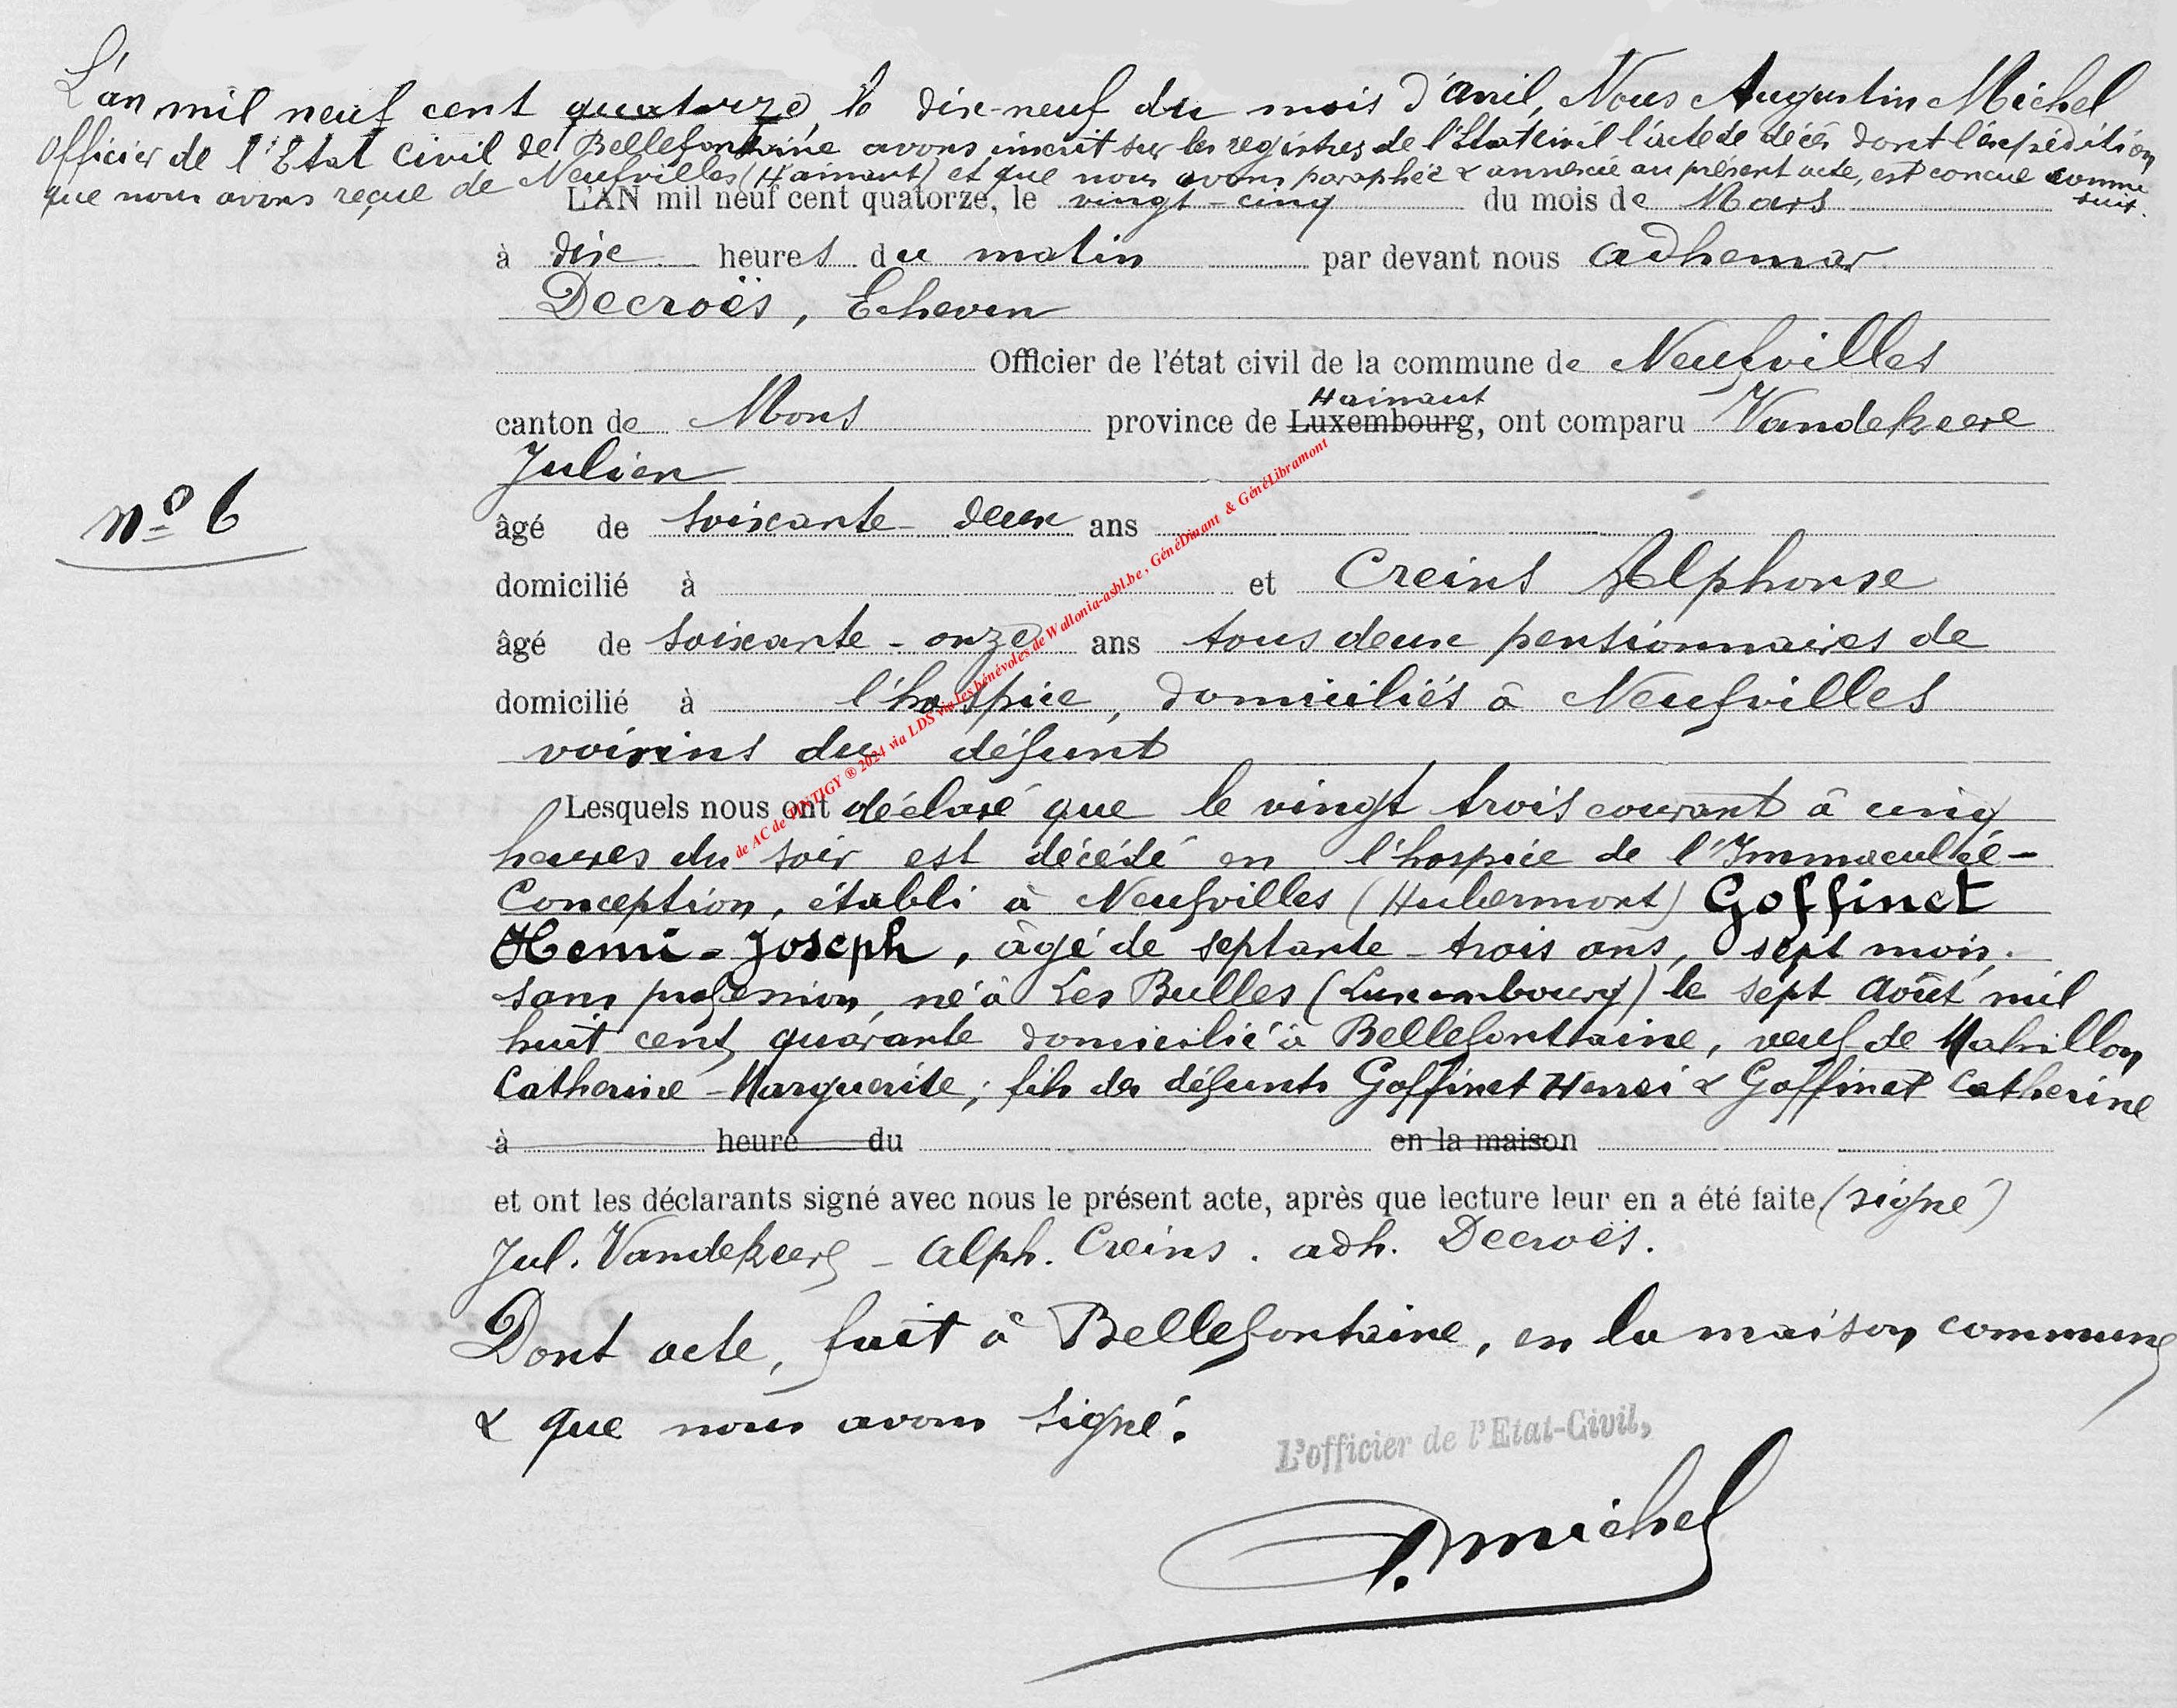 L'an mil neuf cent quatorze, le dix-neuf du mois d'avril, Nous Augustin Michel
Officier de l'Etat Civil de Bellefontaine avons inscrit sur les registres de l'Etat civil l'acte de décès dont l'expédition
que nous avons reçue de Neufvilles (Hainaut) et que nous avons paraphée & annexée au présent acte, est conçue comme
suit.
L'AN mil neuf cent quatorze, le vingt-cinq du mois de Mars
à dix heures du matin par devant nous Adhemar
Decroës, Echevin
Officier de l'état civil de la commune de Neufvilles
Hainaut
canton de Mons province de Luxembourg, ont comparu Vandekeere
Julien
n° 6
âgé de soixante-deux ans
domicilié à et Creins Alphonse
âgé de soixante-onze ans tous deux pensionnaires de
domicilié à l'hospice, domiciliés à Neufvilles
voisins du défunt
Lesquels nous ont déclaré que le vingt trois courant à cinq
heures du soir est décédé en l'hospice de l'Immaculée-
Conception, établi à Neufvilles (Hubermont) Goffinet
Henri-Joseph, âgé de septante-trois ans, sept mois,
sans profession, né à Les Bulles (Luxembourg) le sept Août mil
huit cent quarante domicilié à Bellefontaine, veuf de Mabillon
Catherine-Marguerite; fils des défunts Goffinet Henri & Goffinet Catherine
à heure du en la maison
et ont les déclarants signé avec nous le présent acte, après que lecture leur en a été faite (signé)
Jul. Vandekeere - Alph. Creins. adh. Decroës.
Dont acte, fait à Bellefontaine, en la maison commune
& que nous avons signé.
L'officier de l'Etat-Civil,
A. Michel
de AC de TINTIGY ® 2024 via LDS via les bénévoles de Wallonia-asbl.be, GénéDinant & GénéLibramont